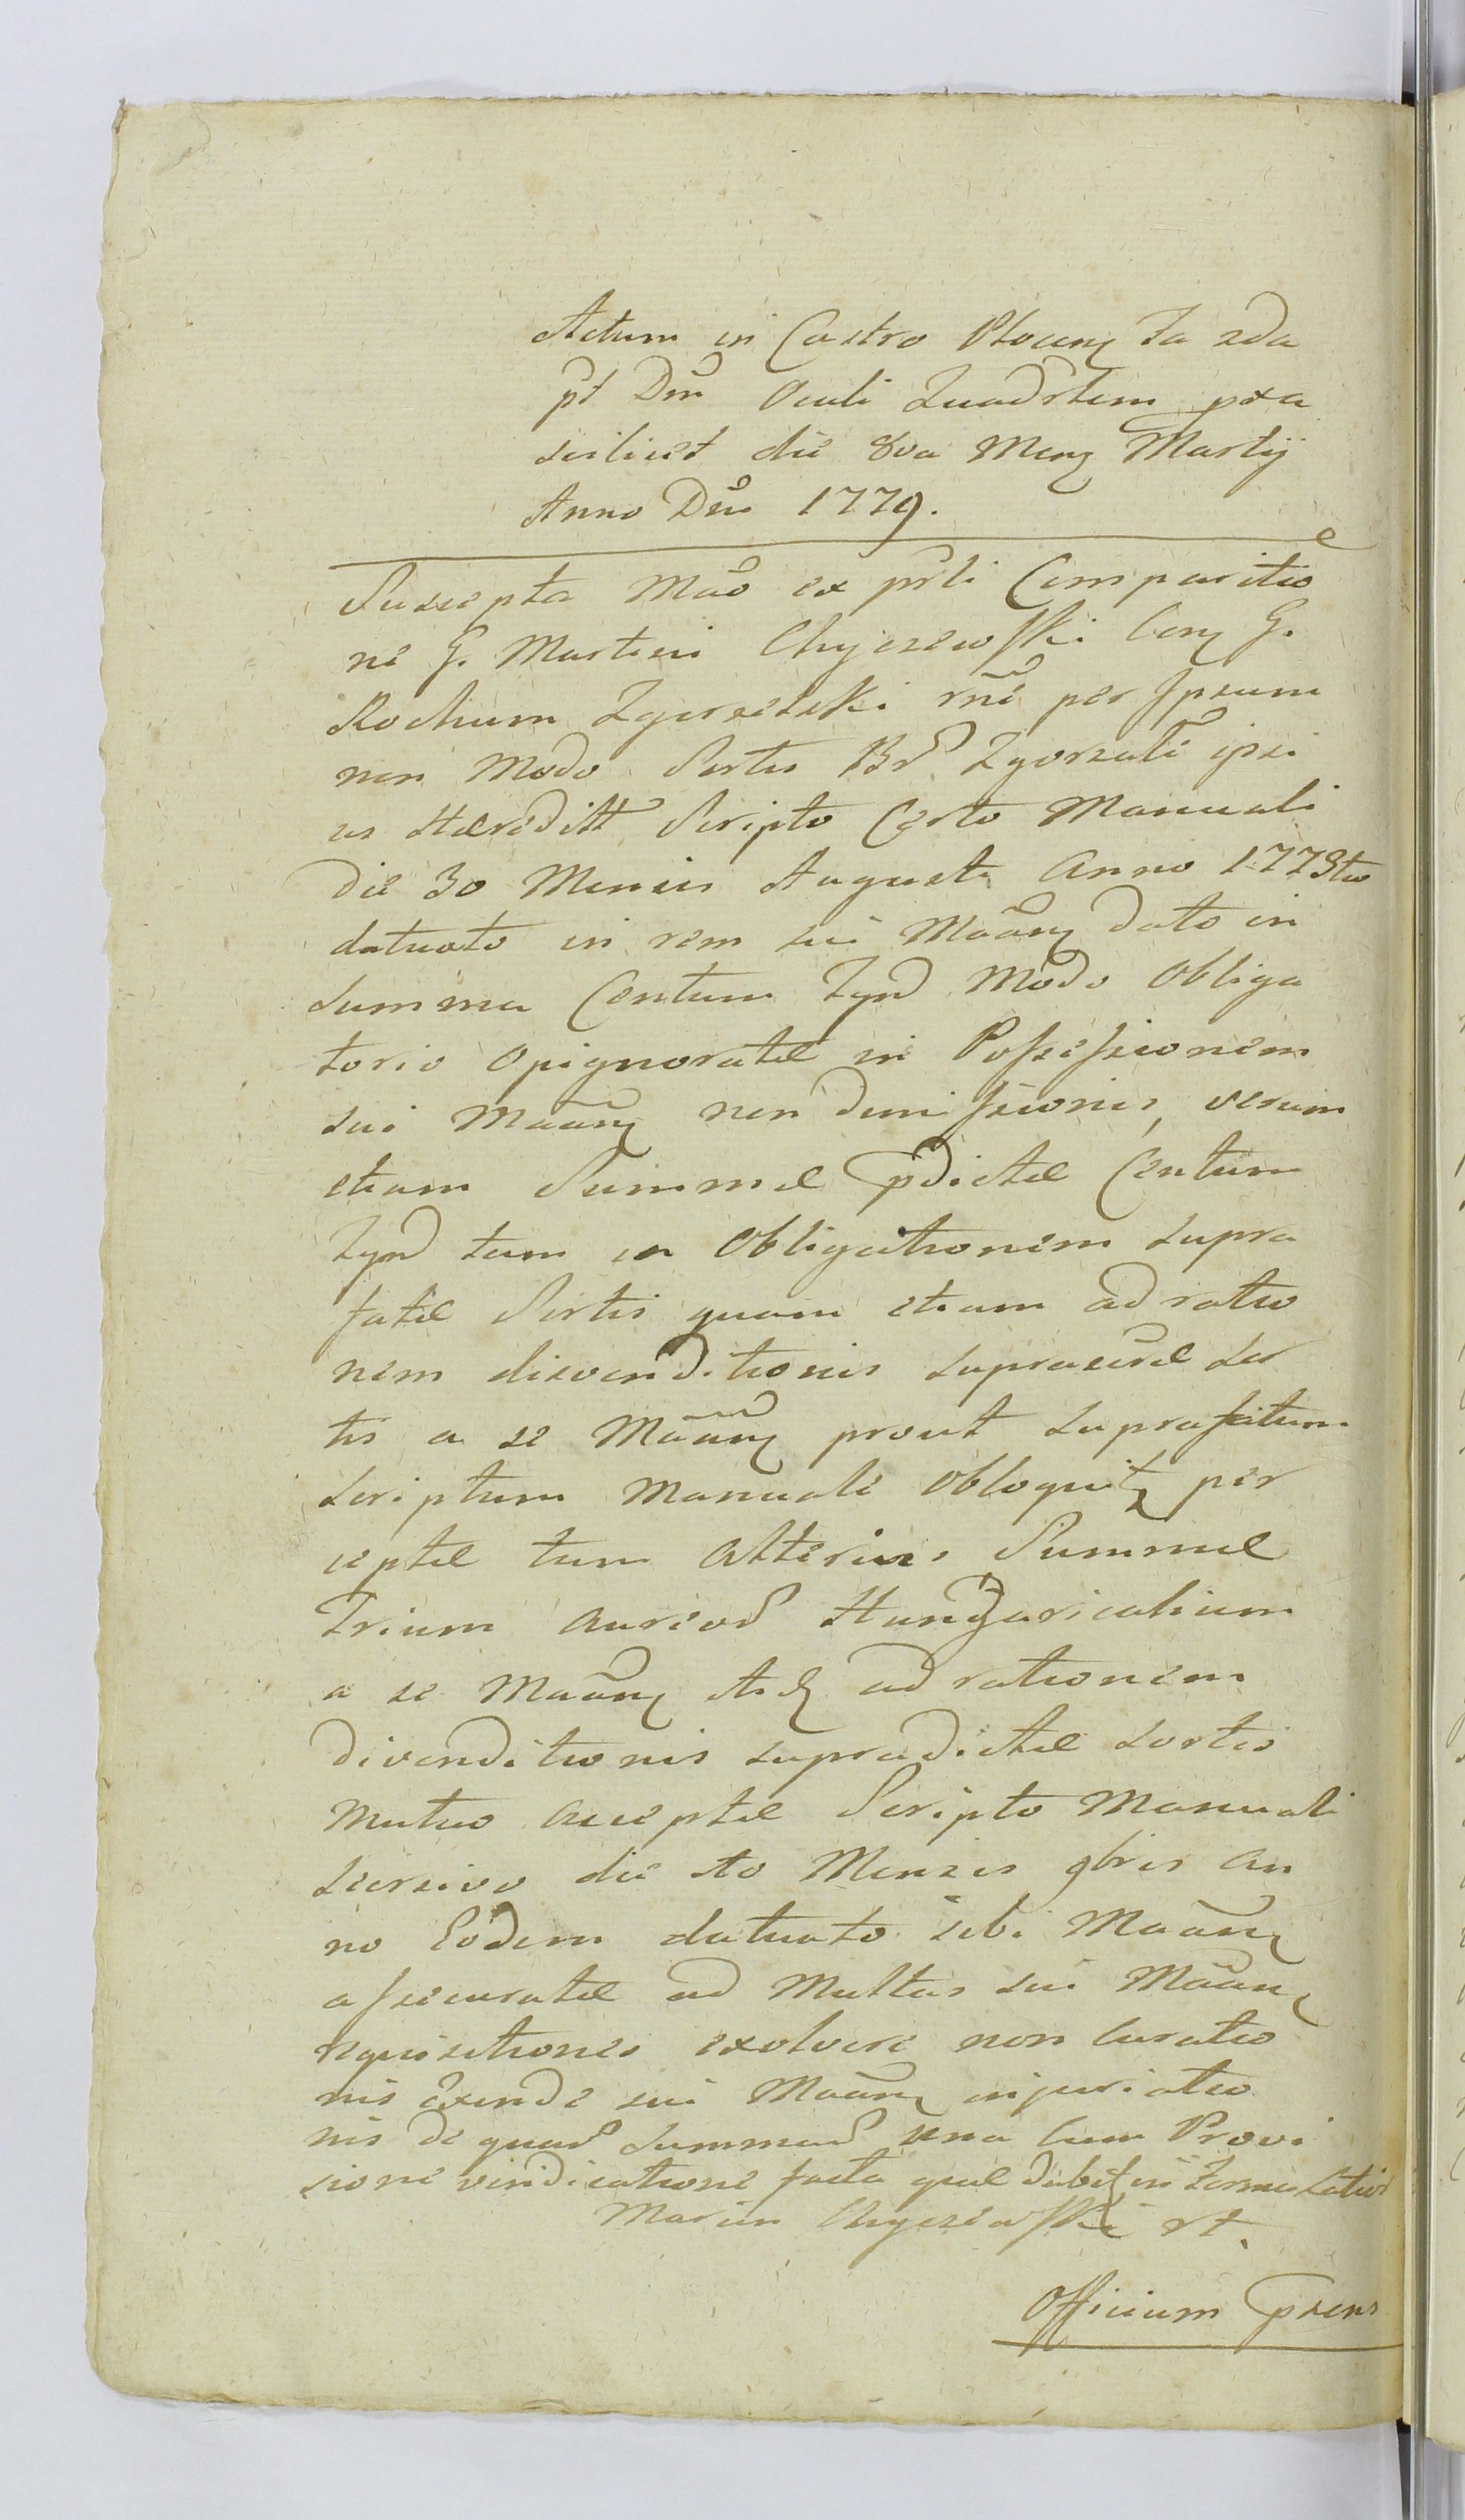 Actum in Castro Plocen fa 2da
pt Dm Oculi Quadrlem pxa
scilicet die 8va Mens Martij
Anno Dni 1779.
Suscepta Mao ex prli Comparitio
ne G. Martini Chyczewski Con G.
Rochum Zgorzelski rne per Ipsum
non Modo Sortis Br Zgorzali ipsi
us Hæreditt Scripto Certo Manuali
Die 30 Mensis Augusti Anno 1773tio
datuato in rem sui Maan dato in
Summa Centum Tynf Modo Obliga
torio Opignoratæ in Possessionem
sui Maan non Dimissionis, verum
etiam Summæ pdictæ Centum
Tynf tum in Obligationem supra
fatæ Sortis quam etiam ad ratio
nem disvenditionis supra Sor
tis a se Maan prout suprafatum
scriptum Manuale Obloquit per
ceptæ tum Alterius Summæ
Trium Aureor Hungaricalium
a se Maan ad rationem
divenditionis supradictæ sortis
Mutuo Acceptæ Scripto Manuali
scorsivo die Mensis 9bris An
no Eodem datuato sibi Maan
assecuratæ ad Multas sui Maan
requisitiones exolvere non Curatio
nis Exinde sui Maan injuriatio
nis De quar Summar una Cum Provi
sione vindicatione facta quæ debet in Termi
Marcin Chyczewski
Officium pxens